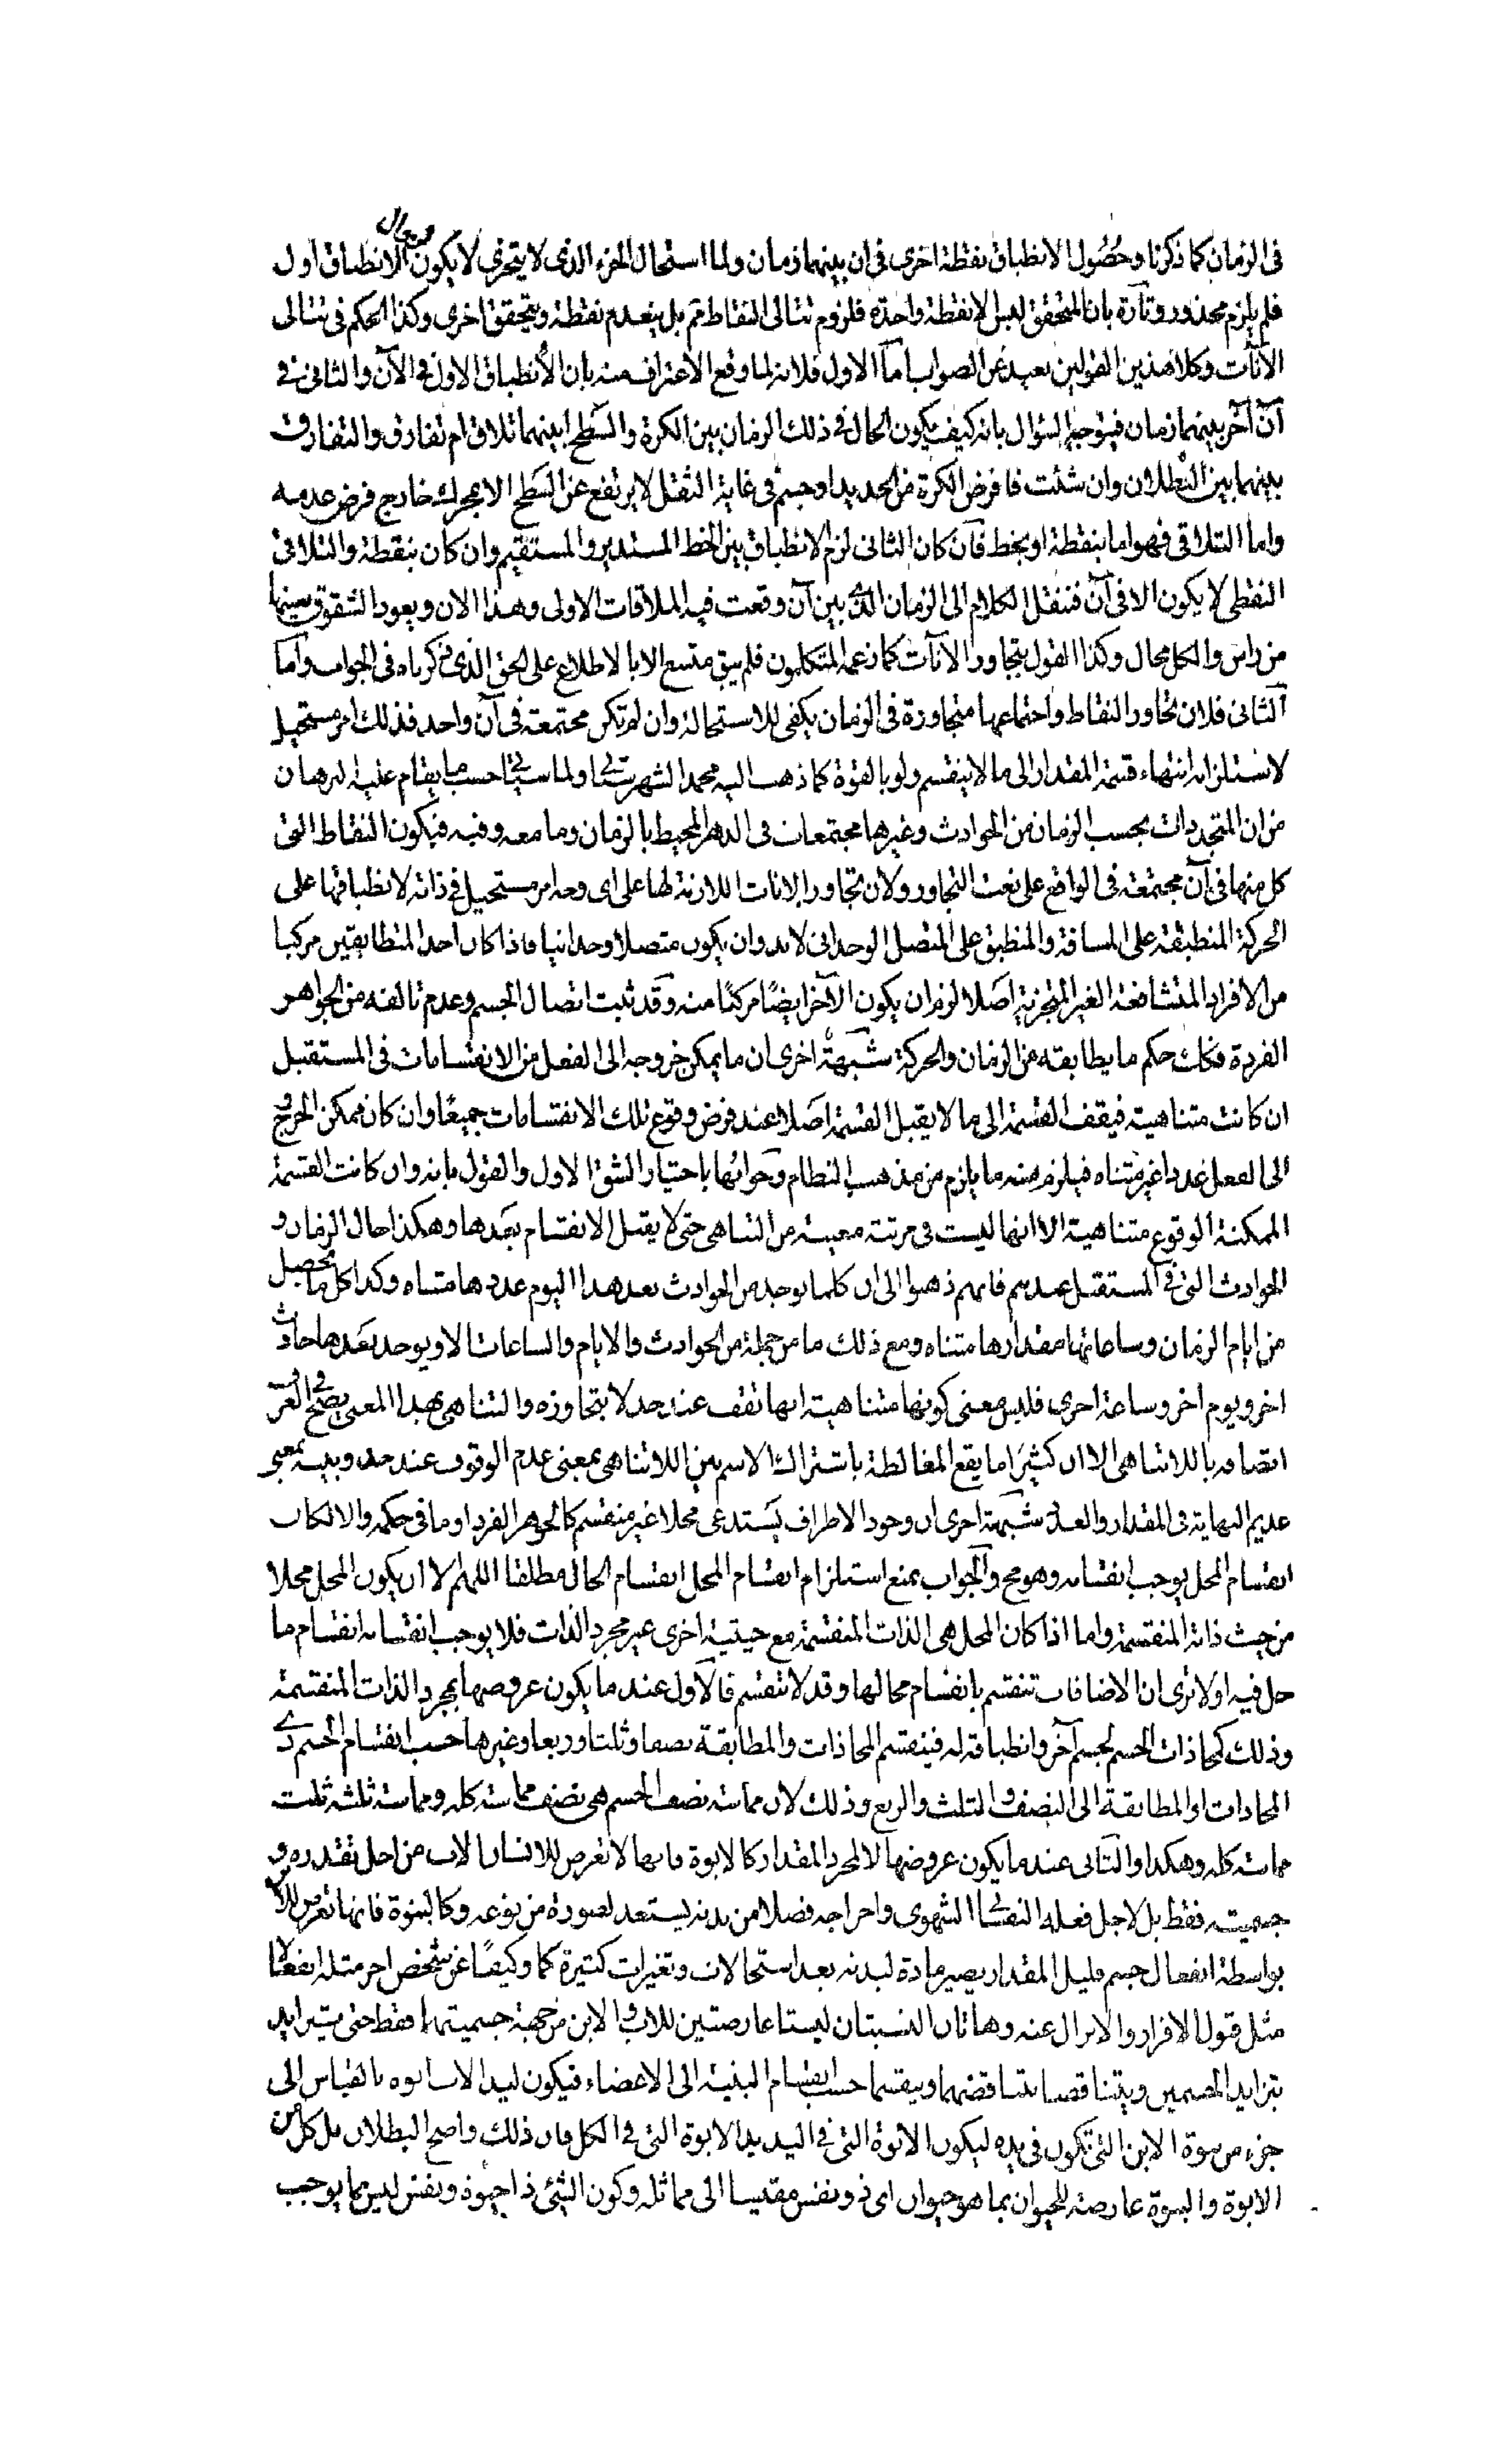 فى الزمان كما ذكرنا وحصول الانطباق بنقطة اخرى فى ان بينهما زمان ولما استحال الجزء الذى لا يتجزى لا يكون لزوال الانطباق اول
فلم يلزم محذور وتارة بان المتحقق ليس الا نقطة واحدة فلزوم تتالى النقاط مم بل ينعدم نقطة ويتحقق اخرى وكذا الحكم فى تتالى
الانات وكلا هذين القولين بعيد عن الصواب اما الاول فلانه لما وقع الاعتراف منه بان الانطباق الاول فى الآن والثانى فى
آن آخر بينهما زمان فيتوجه السؤال بانه كيف يكون الحال فى ذلك الزمان بين الكرة والسطح ابينهما تلاق ام تفارق والتفارق
بينهما بين البطلان وان شئت فافرض الكرة من الحديد او جسم فى غاية الثقل لا يرتفع عن السطح الا بمحرك خارج فرض عدمه
واما التلاقى فهو اما بنقطة او بخط فان كان الثانى لزم الانطباق بين الخط المستدير والمستقيم وان كان بنقطة والتلاقى
النقطى لا يكون الا فى آن فننقل الكلام الى الزمان الذى بين آن وقعت فيه الملاقات الاولى وهذا الان ويعود الشقوق بعينها
من راس والكل محال وكذا القول بتجاور الآنات كما زعمه المتكلمون فلم يبق متسع الا بالاطلاع على الحق الذى ذكرناه فى الجواب واما
الثانى فلان تجاور النقاط واجتماعها متجاورة فى الزمان يكفى للاستحالة وان لم تكن مجتمعة فى آن واحد فذلك امر مستحيل
لاستلزامه انتهاء قسمة المقدار الى ما لا ينقسم ولو بالقوة كما ذهب اليه محمد الشهرستانى ولما سياتى حسب ما يقام عليه البرهان
من ان المتجددات بحسب الزمان من الحوادث وغيرها مجتمعات فى الدهر المحيط بالزمان وما معه وفيه فيكون النقاط التى
كل منها فى آن مجتمعة فى الواقع على نعت التجاور ولان تجاور الانات اللازمة لها على اى وجه امر مستحيل فى ذاته لانطباقها على
الحركة المنطبقة على المسافة والمنطبق على المتصل الوحدانى لابد وان يكون متصلا وحدانيا فاذا كان احد المتطابقين مركبا
من الافراد المتشافعة الغير المتجزية اصلا لزم ان يكون الآخر ايضا مركبا منه وقد ثبت اتصال الجسم وعدم تالفه من الجواهر
الفردة فكك حكم ما يطابقه من الزمان والحركة شبهة اخرى ان ما يمكن خروجه الى الفعل من الانقسامات فى المستقبل
ان كانت متناهية فيقف القسمة الى ما لا يقبل القسمة اصلا عند فرض وقوع تلك الانقسامات جميعا وان كان ممكن الخروج
الى الفعل عددا غير متناه فيلزم منه ما يلزم من مذهب النظام وجوابها باختيار الشق الاول والقول بانه وان كانت القسمة
الممكنة الوقوع متناهية الا انها ليست فى مرتبة معينة من التناهى حتى لا يقبل الانقسام بعدها وهكذا حال الزمان و
الحوادث التى فى المستقبل عندهم فانهم ذهبوا الى ان كلما يوجد من الحوادث بعد هذا اليوم عددها متناه وكذا كل ما يحصل
من ايام الزمان وساعاتها مقدارها متناه ومع ذلك ما من جملة من الحوادث والايام والساعات الا ويوجد بعدها حادث
اخر ويوم اخر وساعة اخرى فليس معنى كونها متناهية انها تقف عند حد لا يتجاوزه والتناهى بهذا المعنى يصح فى العرف
اتصافه باللاتناهى الا ان كثيرا ما يقع المغالطة باشتراك الاسم بين اللاتناهى بمعنى عدم الوقوف عند حد وبينه بمعنى
عديم النهاية فى المقدار والعدد شبهة اخرى ان وجود الاطراف يستدعى محلا غير منقسم كالجوهر الفرد او ما فى حكمه والا لكان
انقسام المحل يوجب انقسامه وهو مح والجواب بمنع استلزام انقسام المحل انقسام الحال مطلقا اللهم الا ان يكون المحل محلا
من حيث ذاته المنقسمة واما اذا كان المحل هى الذات المنقسمة مع حيثية اخرى غير مجرد الذات فلا يوجب انقسامه انقسام ما
حل فيه اولا ترى ان الاضافات تنقسم بانقسام محالها وقد لا تنقسم فالاول عند ما يكون عروضها بمجرد الذات المنقسمة
وذلك كمحاذات الجسم لجسم آخر وانطباقه له فينقسم المحاذات والمطابقة نصفا وثلثا وربعا وغيرها حسب انقسام الجسم ذى
المحاذات او المطابقة الى النصف والثلث والربع وذلك لان مماسة نصف الجسم هى نصف مماسة كله ومماسة ثلثه ثلث
مماسة كله وهكذا والثانى عند ما يكون عروضها لا لمجرد المقدار كالابوة فانها لا تعرض للانسان الاب من اجل تقدره و
جسميته فقط بل لاجل فعله النفسانى الشهوى واخراجه فضلا من بدنه يستعد لصورة من نوعه وكالبنوة فانها تعرض للابن
بواسطة انفعال جسم قليل المقدار يصير مادة لبدنه بعد استحالات وتغيرات كثيرة كما وكيفا عن شخص اخر مثله انفعالا
مثل قبول الافراز والانزال عنه وهاتان النسبتان ليستا عارضتين للاب والابن من جهة جسميتهما فقط حتى يتزايد
بتزايد الجسمين ويتناقصا بتناقضهما وينقسما حسب انقسام البنية الى الاعضاء فيكون ليد الاب ابوه بالقياس الى
جزء من بنوة الابن التى تكون فى يده ليكون الابوة التى فى اليد يد الابوة التى فى الكل فان ذلك واضح البطلان بل كل من
الابوة والبنوة عارضة للحيوان بما هو حيوان اى ذو نفس مقيسا الى مماثله وكون الشئ ذا حيوة ونفس ليس مما يوجب